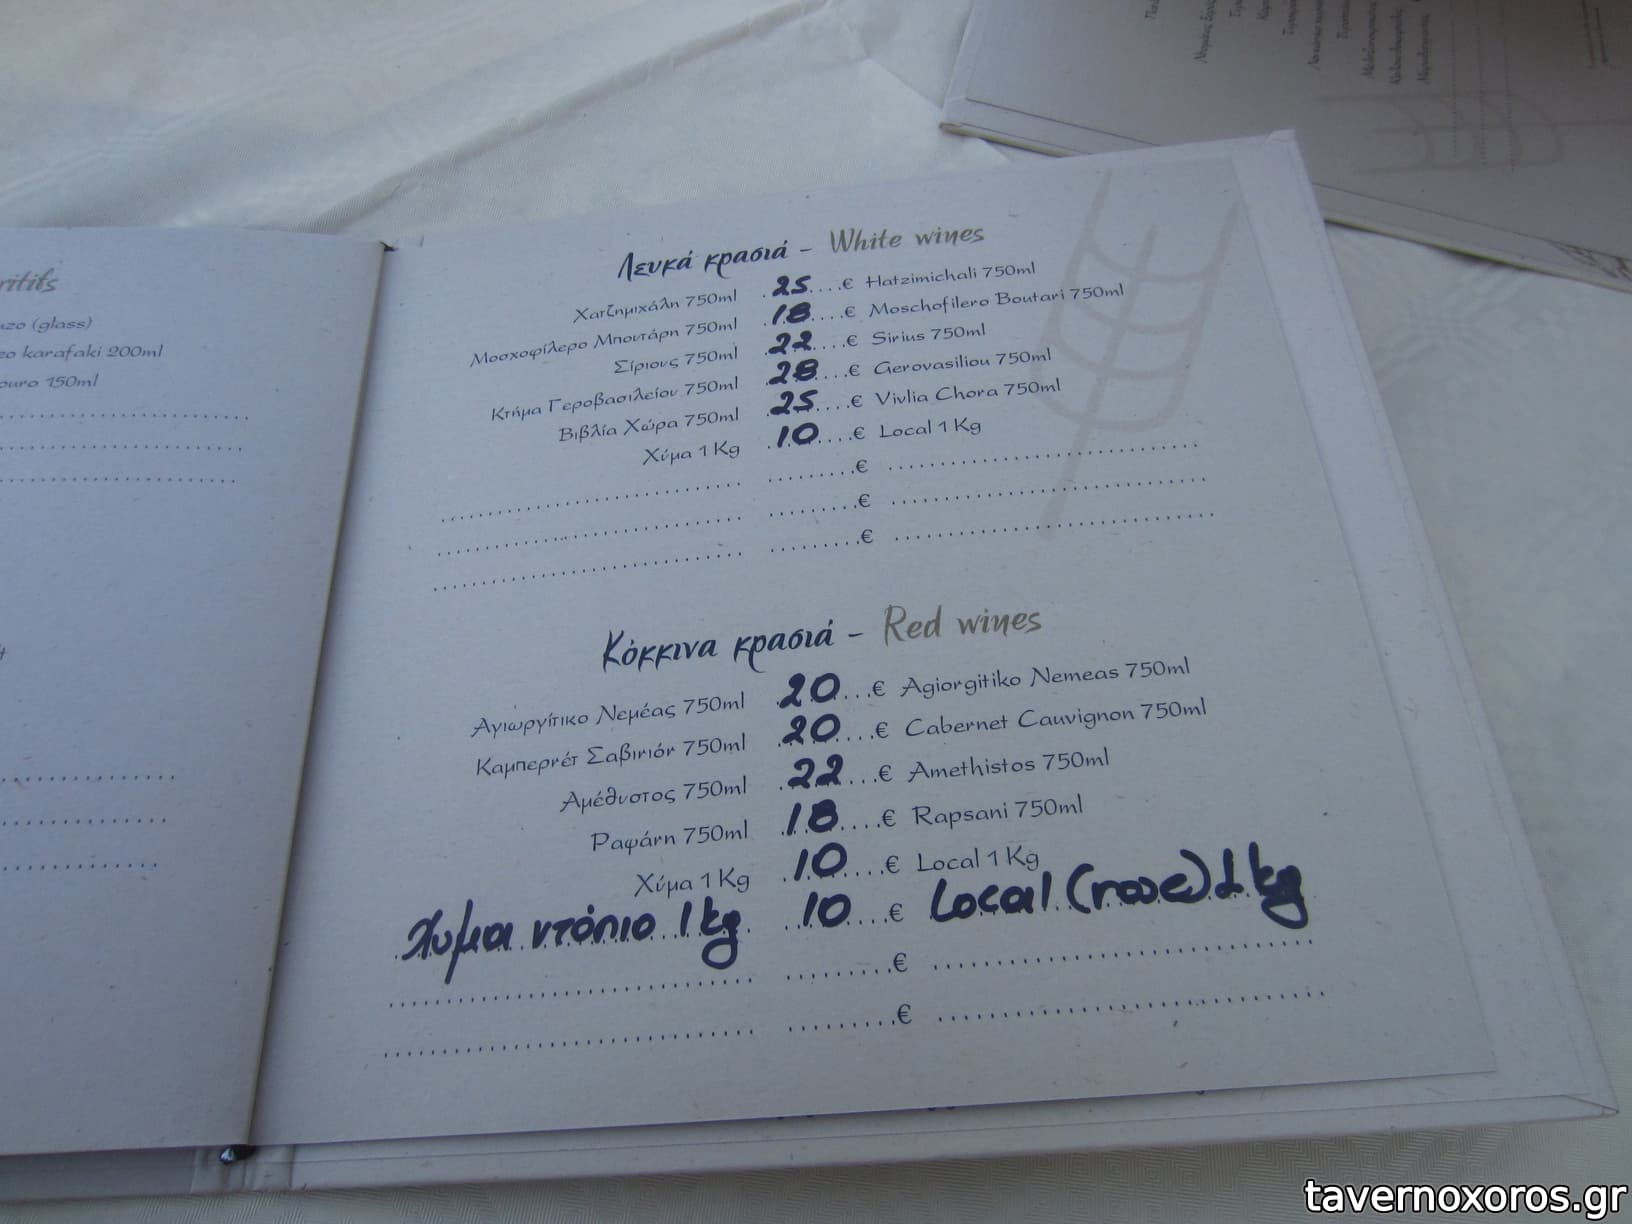 ritifs
uzo (glass)
zo karafaki 200ml
ouro 150ml
Λευκά κρασιά - White wines
Χατζημιχάλη 750ml 25 € Hatzimichali 750ml
Μοσχοφίλερο Μπουτάρη 750ml 18 € Moschofilero Boutari 750ml
Σίριους 750ml 22 € Sirius 750ml
Κτήμα Γεροβασιλείου 750ml 28 € Gerovasiliou 750ml
Βιβλία Χώρα 750ml 25 € Vivlia Chora 750ml
Χύμα 1 Kg 10 € Local 1 Kg
€
€
€
Κόκκινα κρασιά - Red wines
Αγιωργίτικο Νεμέας 750ml 20 € Agiorgitiko Nemeas 750ml
Καμπερνέτ Σαβινιόν 750ml 20 € Cabernet Cauvignon 750ml
Αμέθυστος 750ml 22 € Amethistos 750ml
Ραψάνη 750ml 18 € Rapsani 750ml
Χύμα 1 Kg 10 € Local 1 Kg
Χυμα ντόπιο 1 kg 10 € Local (rose) 1 kg
€
€
tavernoxoros.gr